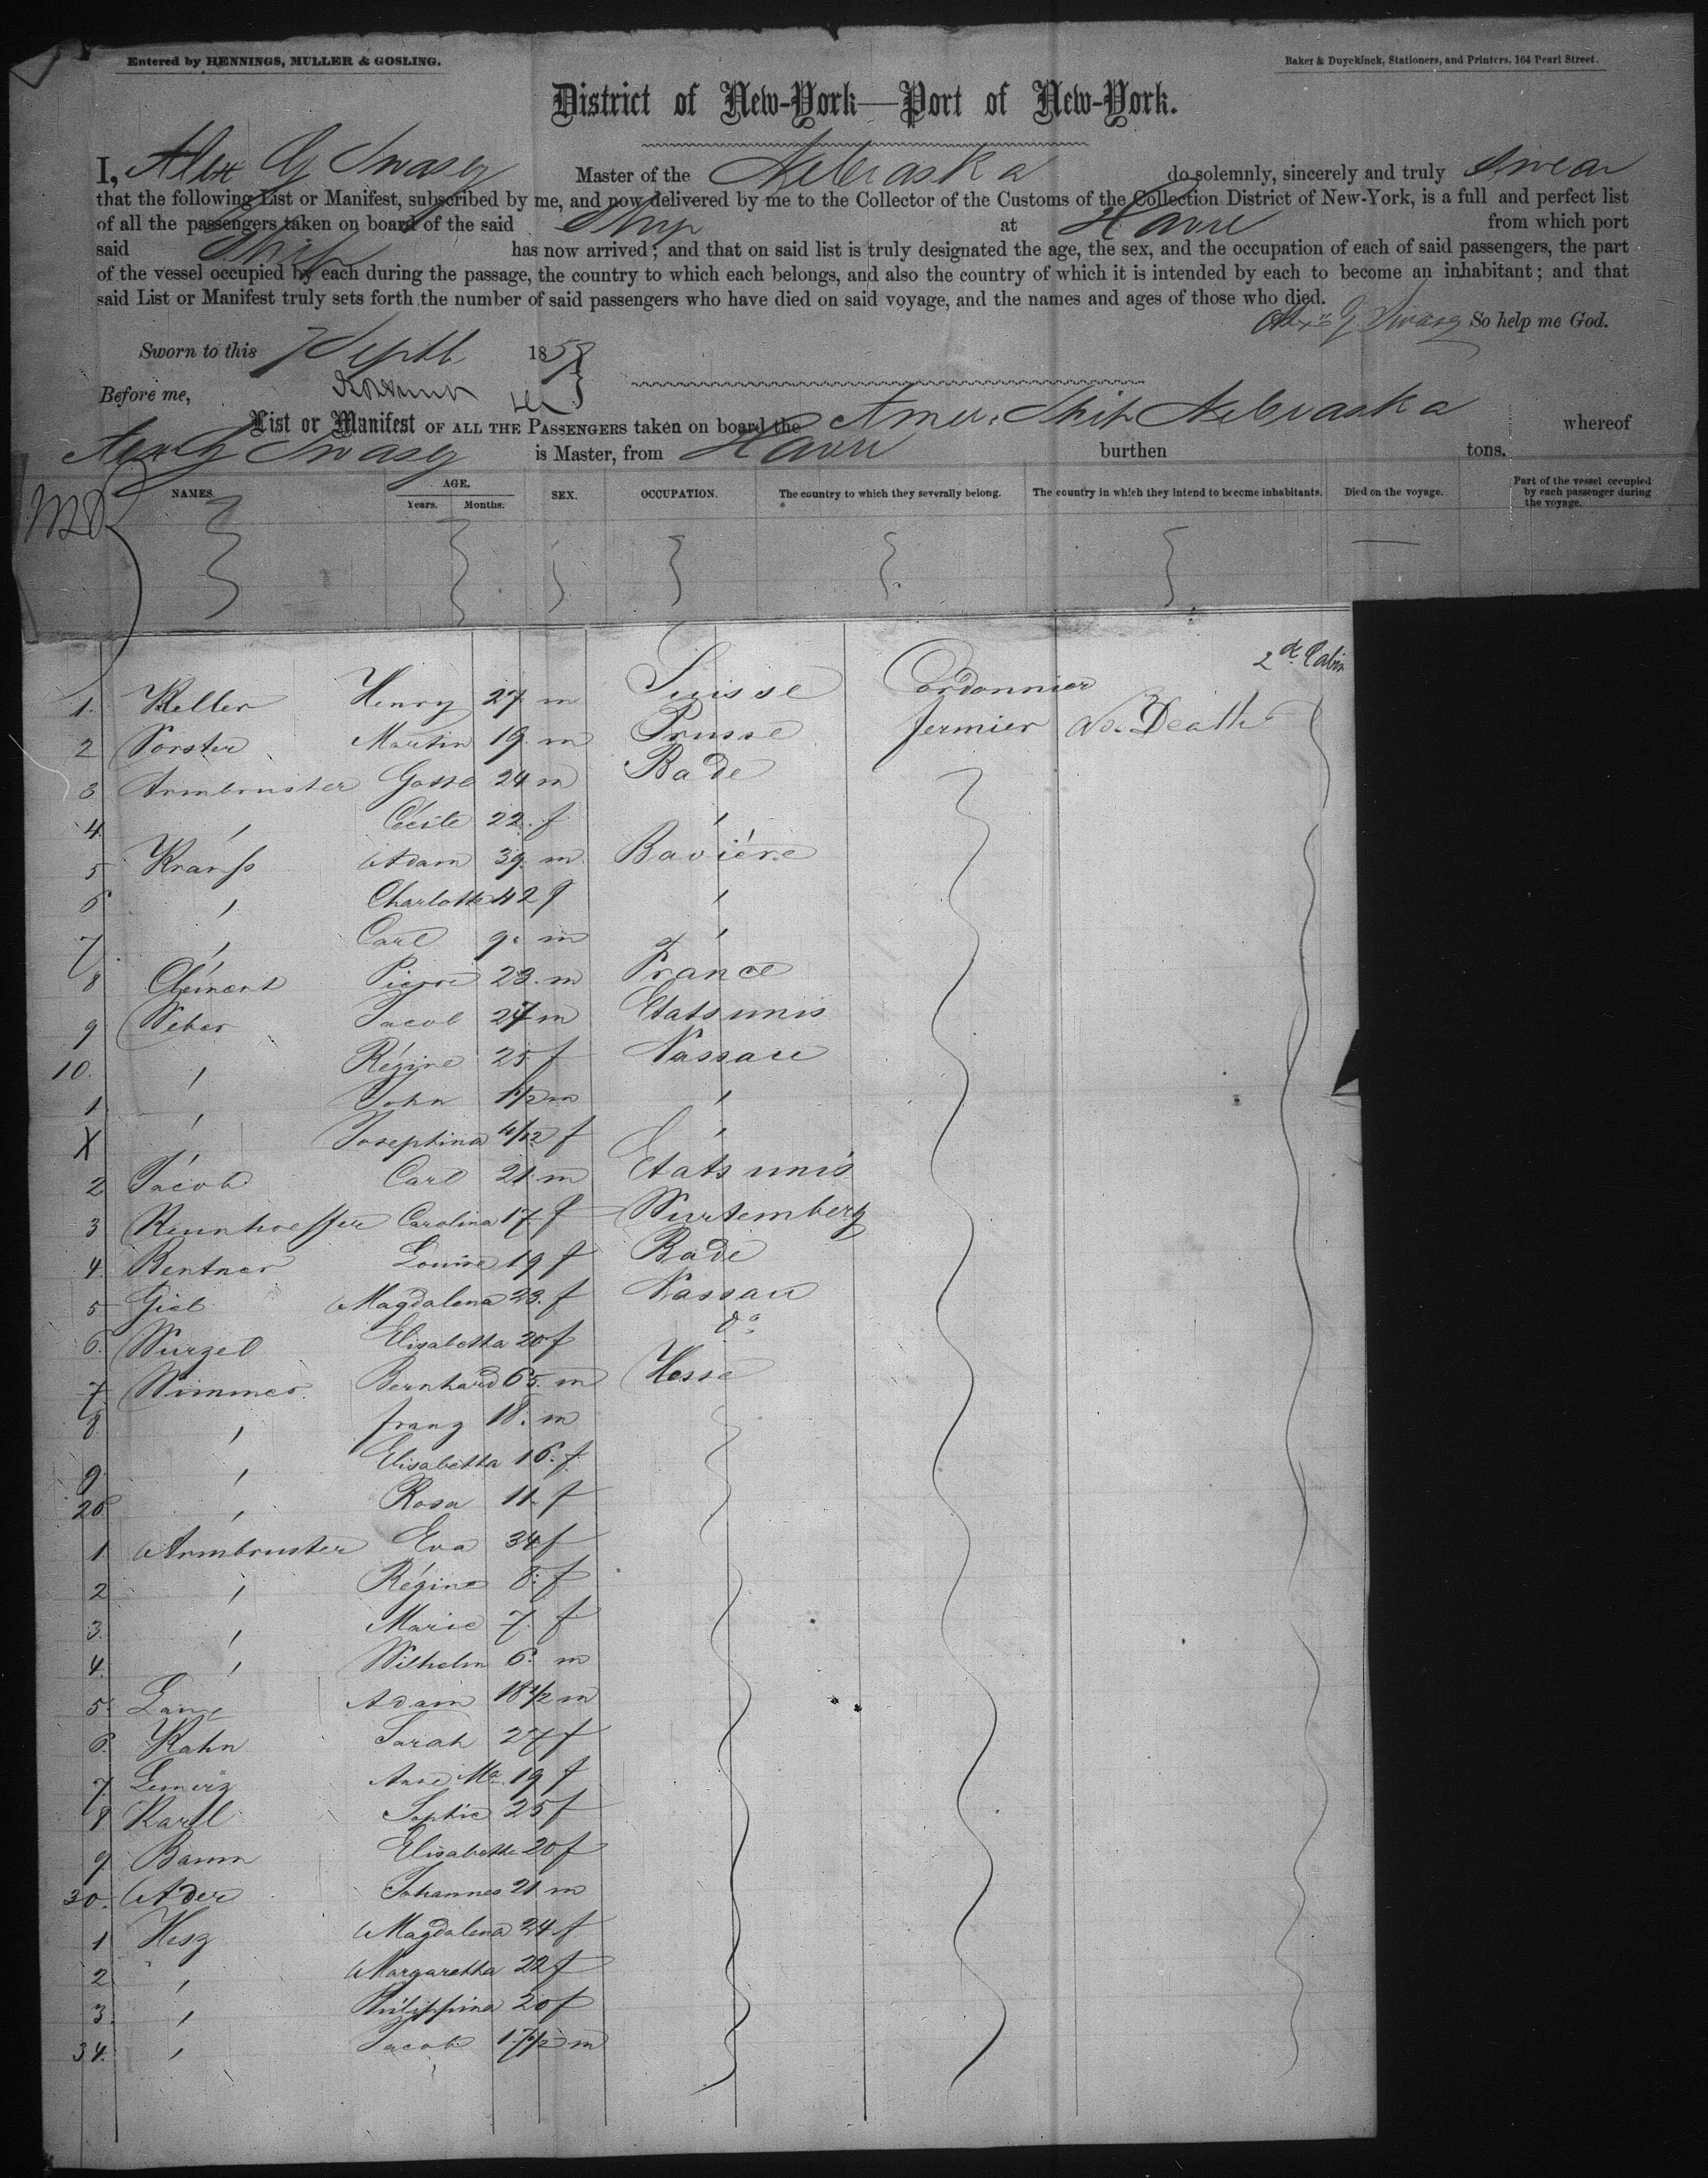 Entered by HENNINGS, MULLER & GOSLING.
Baker & Duyckinck, Stationers, and Printers, 164 Pearl Street.
District of New-York—Port of New-York.
I, Alex G Swasey Master of the Nebraska do solemnly, sincerely and truly Swear
that the following List or Manifest, subscribed by me, and now delivered by me to the Collector of the Customs of the Collection District of New-York, is a full and perfect list
of all the passengers taken on board of the said Ship at Havre from which port
said Ship has now arrived; and that on said list is truly designated the age, the sex, and the occupation of each of said passengers, the part
of the vessel occupied by each during the passage, the country to which each belongs, and also the country of which it is intended by each to become an inhabitant; and that
said List or Manifest truly sets forth the number of said passengers who have died on said voyage, and the names and ages of those who died.
Alexr G. Swasey So help me God.
Sworn to this 7 Septb 1858
Before me,
List or Manifest OF ALL THE PASSENGERS taken on board the Amer. Ship Nebraska whereof
Alex G Swasey is Master, from Havre burthen tons.
NAMES. AGE. Years. Months. SEX. OCCUPATION. The country to which they severally belong. The country in which they intend to become inhabitants. Died on the voyage. Part of the vessel occupied by each passenger during the voyage.
2de Cabin
1. Keller Henry 27 m Suisse Cordonnier
2 Vorster Martin 19 m Prusse fermier No Death
3 Armbruster Gottl 24 m Bade
4. " Cécile 22. f "
5 Kranss Adam 39. m Bavière
6 " Charlotte 42 f "
7 " Carl 9. m "
8 Clément Pierre 23. m France
9 Weber Jacob 27 m Etats unis
10. " Régine 25 f Nassau
1. " John 1 1/2 m "
X " Josephina 4/12 f "
2 Jacob Carl 21. m Etats unis
3 Carolina 17 f Wurtemberg
4. Bentner Louise 19 f Bade
5 Giel Magdalena 23. f Nassau
6. Wurzel Elisabetha 20 f do
7 Wimmer Bernhard 65. m Hesse
8 " franz 18. m
9 " Elisabetha 16. f
20 " Rosa 11. f
1 Armbruster Eva 34 f
2 " Régine 8. f
3. " Marie 7. f
4. " Wilhelm 6. m
5 Lang Adam 18 1/2 m
6. Kahn Sarah 27 f
7. Anne Ma. 19 f
8 Karll Sophie 25 f
9 Baum Elisabetha 20 f
30. Ader Johannes 21 m
1 Hesz Magdalena 24 f
2 " Margaretha 22 f
3. " Philippina 20 f
34. " Jacob 17 1/2 m